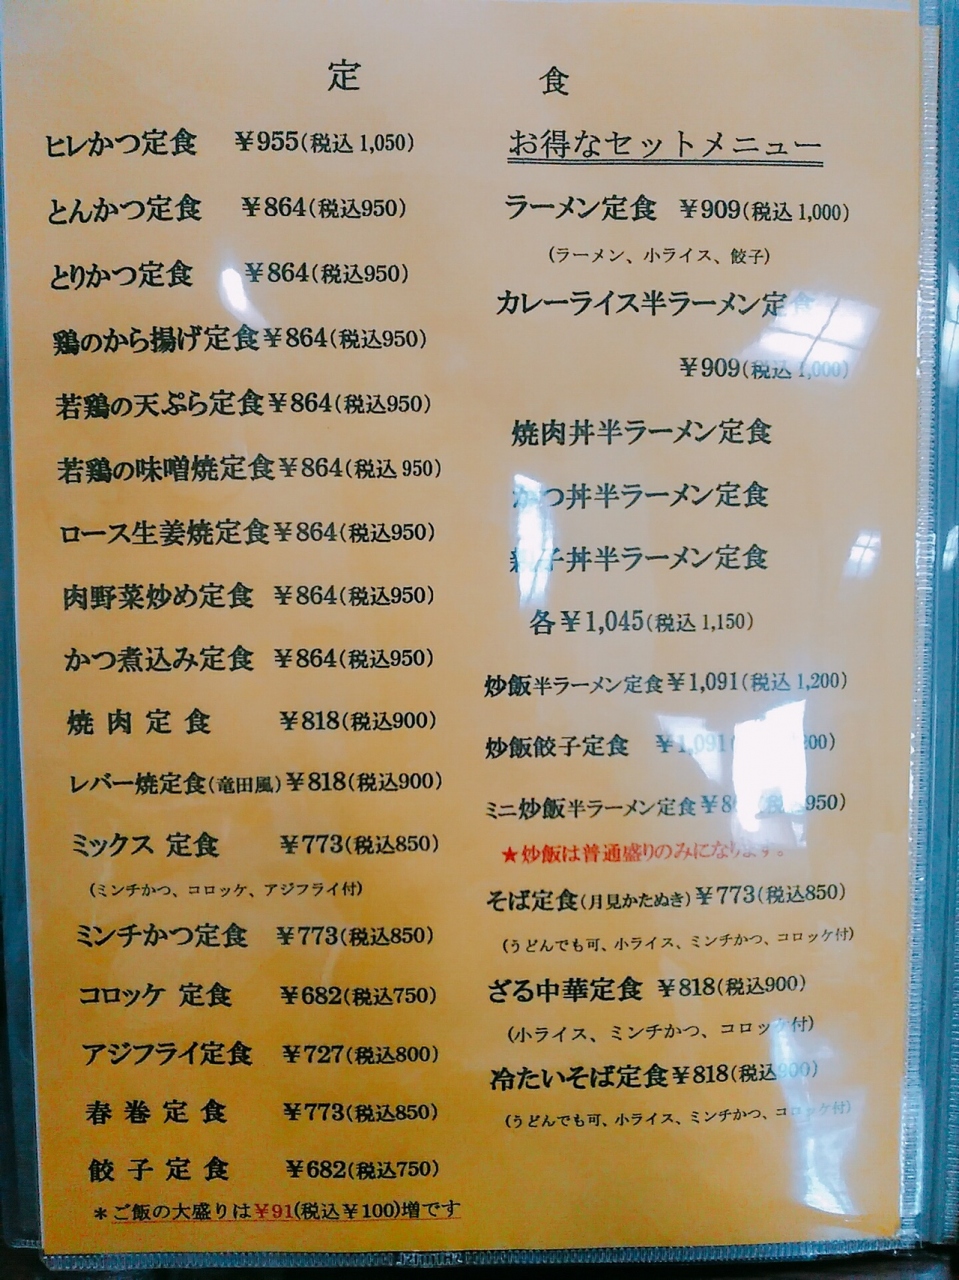 定食
ヒレかつ定食 ￥955(税込1,050)
とんかつ定食 ￥864(税込950)
とりかつ定食 ￥864(税込950)
鶏のから揚げ定食￥864(税込950)
若鶏の天ぷら定食￥864(税込950)
若鶏の味噌焼定食￥864(税込950)
ロース生姜焼定食￥864(税込950)
肉野菜炒め定食 ￥864(税込950)
かつ煮込み定食 ￥864(税込950)
焼肉定食 ￥818(税込900)
レバー焼定食(竜田風)￥818(税込900)
ミックス 定食 ￥773(税込850)
(ミンチかつ、コロッケ、アジフライ付)
ミンチかつ定食 ￥773(税込850)
コロッケ 定食 ￥682(税込750)
アジフライ定食 ￥727(税込800)
春巻定食 ￥773(税込850)
餃子定食 ￥682(税込750)
＊ご飯の大盛りは￥91(税込￥100)増です
お得なセットメニュー
ラーメン定食 ￥909(税込1,000)
(ラーメン、小ライス、餃子)
カレーライス半ラーメン定食
￥909(税込1,000)
焼肉丼半ラーメン定食
かつ丼半ラーメン定食
親子丼半ラーメン定食
各￥1,045(税込1,150)
炒飯半ラーメン定食￥1,091(税込1,200)
炒飯餃子定食 ￥1,091
ミニ炒飯半ラーメン定食 (税込950)
★炒飯は普通盛りのみになります。
そば定食(月見かたぬき)￥773(税込850)
(うどんでも可、小ライス、ミンチかつ、コロッケ付)
ざる中華定食 ￥818(税込900)
(小ライス、ミンチかつ、コロッケ付)
冷たいそば定食￥818(税込900)
(うどんでも可、小ライス、ミンチかつ、コロッケ付)